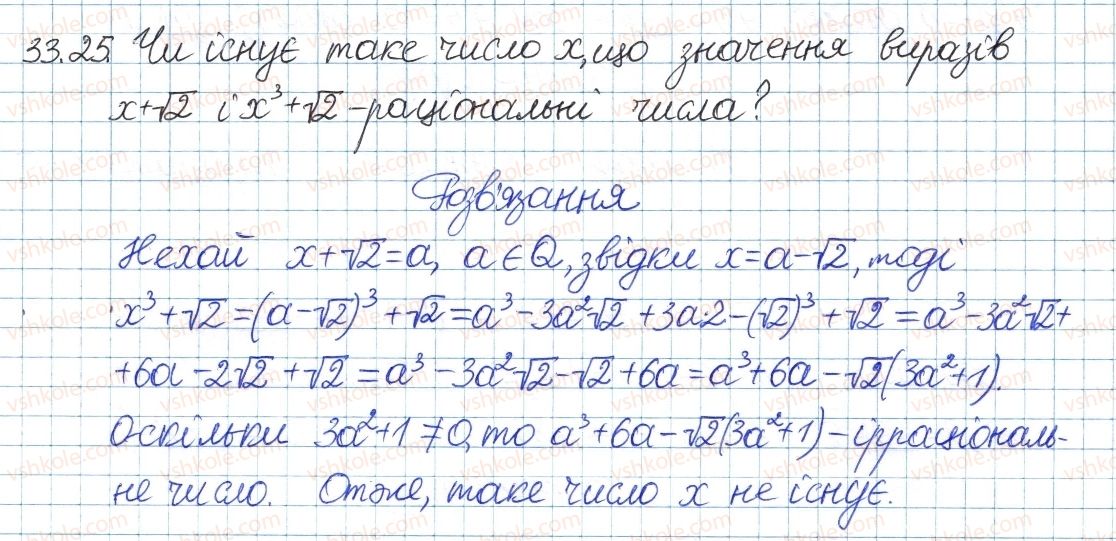 33.25. Чи існує таке число x, що значення виразів
x+√2 і x³+√2 - раціональні числа?
Розв'язання
Нехай x+√2=a, a∈Q, звідки x=a-√2, тоді
x³+√2=(a-√2)³+√2=a³-3a²√2+3a·2-(√2)³+√2=a³-3a²√2+
+6a-2√2+√2=a³-3a²√2-√2+6a=a³+6a-√2(3a²+1).
Оскільки 3a²+1≠0, то a³+6a-√2(3a²+1)-ірраціональ-
не число. Отже, таке число x не існує.